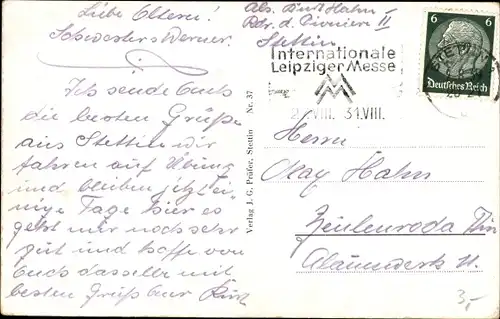 Liebe Eltern!
Schwester u Werner.
Ich sende Euch
die besten Grüße
aus Stettin wir
fahren auf Übung
und bleiben jetzt ei-
nige Tage hier es
geht mir noch sehr
gut und hoffe von
Euch dasselbe mit
besten Gruß Euer Kurt
Verlag J. G. Prüfer, Stettin Nr. 37
Abs. Kurt Hahn
d. Pionier II
Stettin
Internationale
Leipziger Messe
VIII. 31.VIII.
6 6
Deutsches Reich
Herrn
Max Hahn
Zeulenroda Thür
Alaunwerk
3,-